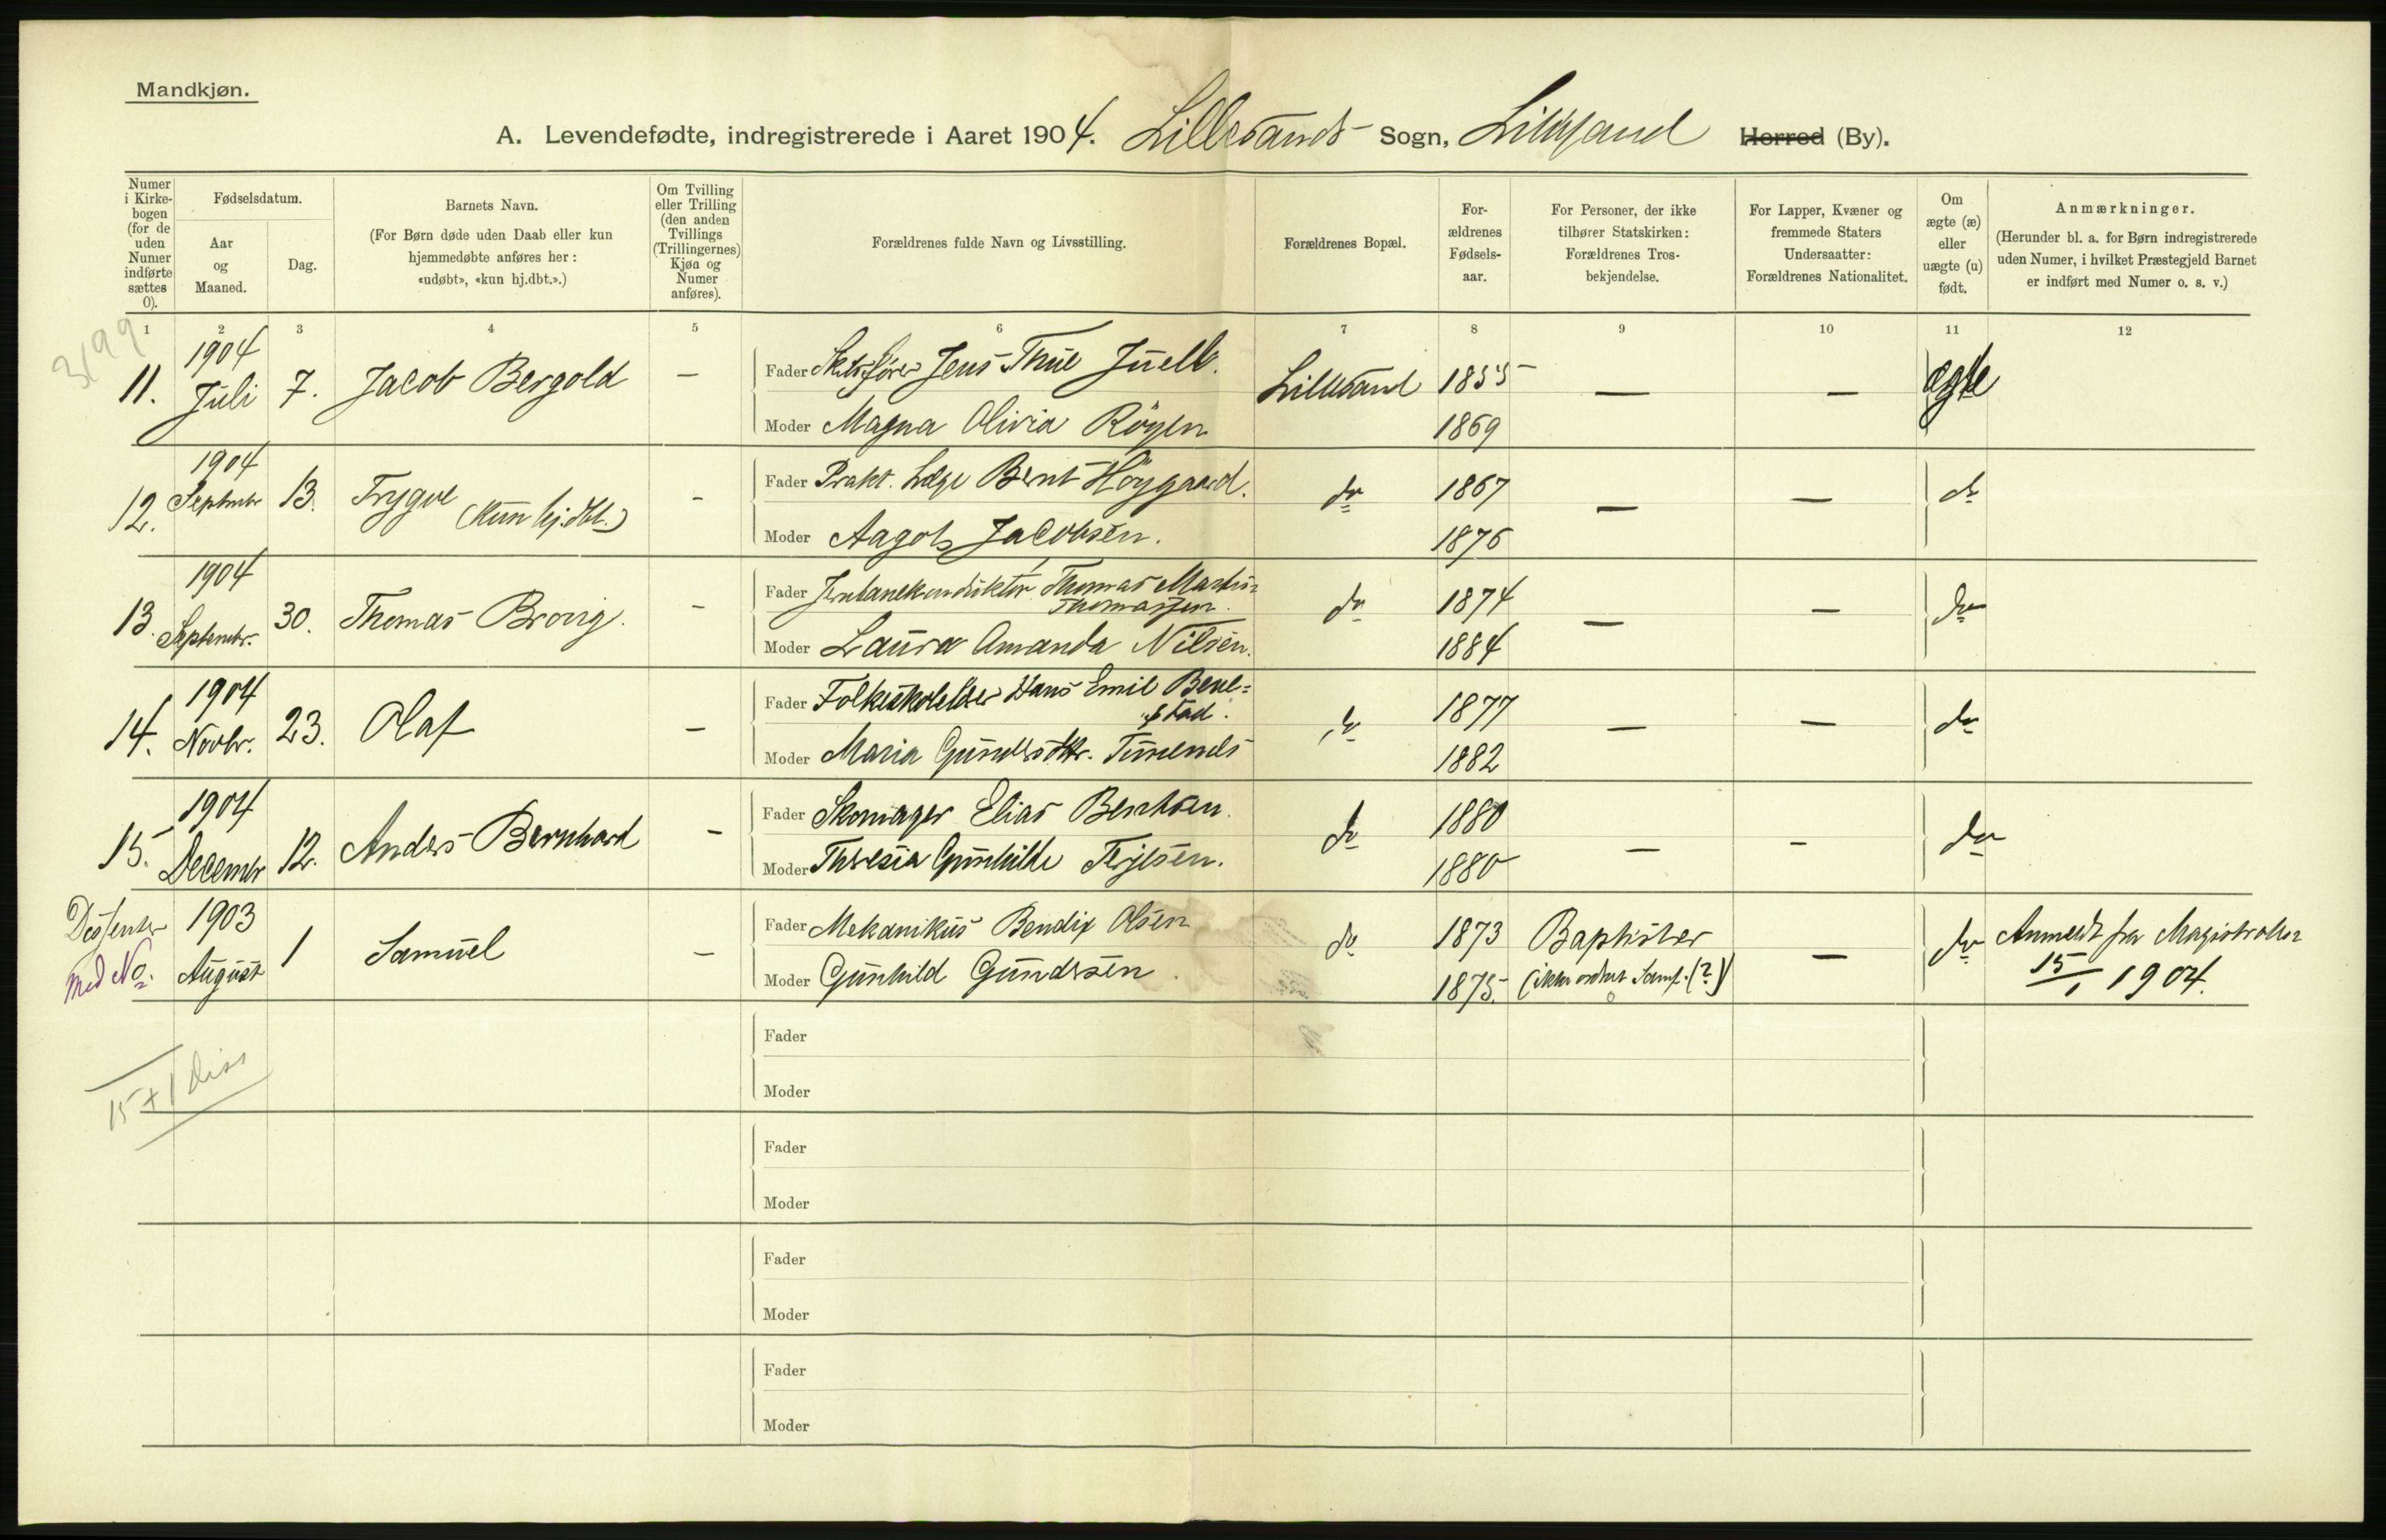 Mandkjøn.
A. Levendefødte, indregistrerede i Aaret 1904. Lillesands Sogn, Lillesand Herred (By).
Numer i Kirkebogen (for de uden Numer indførte sættes 0).
Fødselsdatum.
Aar og Maaned.
Dag.
Barnets Navn.
(For Børn døde uden Daab eller kun hjemmedøbte anføres her: «udøbt», «kun hj.dbt.».)
Om Tvilling eller Trilling (den anden Tvillings (Trillingernes) Kjøn og Numer anføres).
Forældrenes fulde Navn og Livsstilling.
Forældrenes Bopæl.
Forældrenes Fødselsaar.
For Personer, der ikke tilhører Statskirken: Forældrenes Trosbekjendelse.
For Lapper, Kvæner og fremmede Staters Undersaatter: Forældrenes Nationalitet.
Om ægte (æ) eller uægte (u) født.
Anmærkninger.
(Herunder bl. a. for Børn indregistrerede uden Numer, i hvilket Præstegjeld Barnet er indført med Numer o. s. v.)
1 2 3 4 5 6 7 8 9 10 11 12
3199
11. 1904 Juli 7. Jacob Bergold —
Fader Jens Thue Juell. Lillesand 1855 — — ægte
Moder Magna Olivia Röyen 1869
12. 1904 September 13. Trygve (kun hj.dbt.) -
Fader Prakt. Læge Bernt Höygaard. do 1867 — — do
Moder Aagot Jacobsen. 1876
13. 1904 Septembr. 30. Thomas Brovig. -
Fader Thomas Martin Thomassen. do 1874 — — do
Moder Laura Amanda Nilsen. 1884
14. 1904 Novbr. 23. Olaf -
Fader Folkeskolelærer Hans Emil Benestad. do 1877 — — do
Moder Maria Gundersdtr. 1882
15. 1904 December 12. Anders Bernhard -
Fader Skomager Elias Bentsen. do 1880 — - do
Moder Theresia Gunhilde Terjesen. 1880
Dissenter med No. 1903 August 1 Samuel -
Fader Mekanikus Bendix Olsen do 1873 Baptister — do Anmeldt fra Magistraten
Moder Gunhild Gundersen. 1875. (ikke ordnet Samf. (?)) 15/1 1904.
Fader
Moder
15 + 1 diss
Fader
Moder
Fader
Moder
Fader
Moder